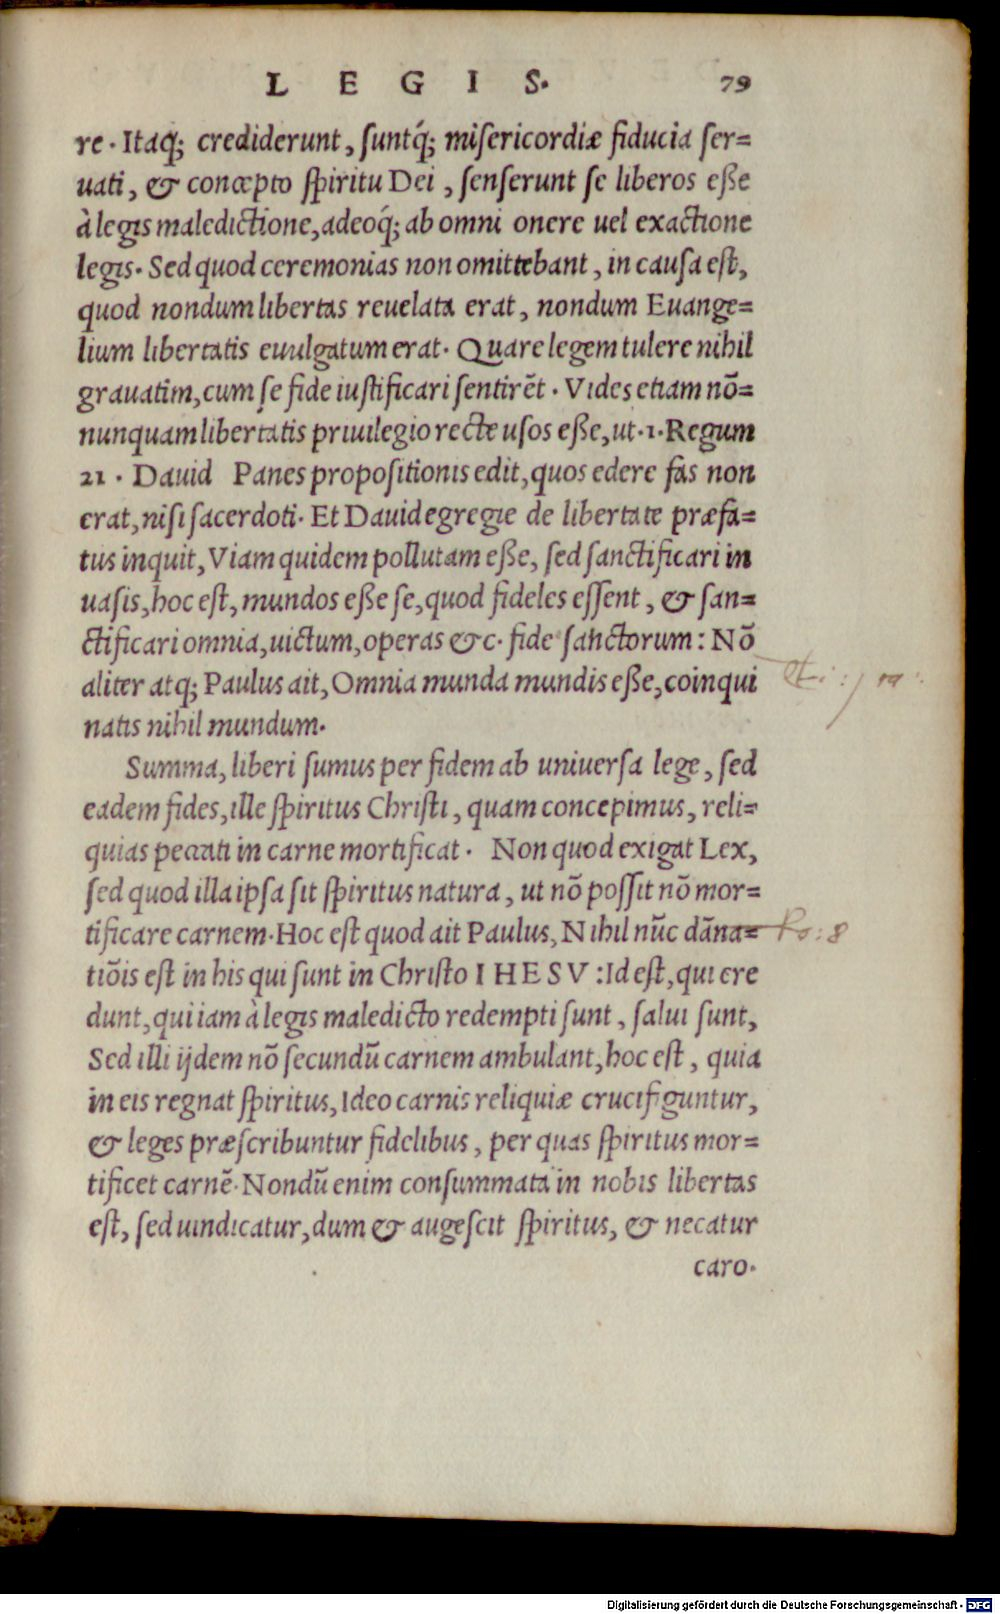 L E G I S. 79
re. Itaq; crediderunt, suntq́; misericordiæ fiducia ser=
uati, & concepto spiritu Dei, senserunt se liberos eße
à legis maledictione, adeoq́; ab omni onere uel exactione
legis. Sed quod ceremonias non omittebant, in causa est,
quod nondum libertas reuelata erat, nondum Euange=
lium libertatis euulgatum erat. Quare legem tulere nihil
grauatim, cum se fide iustificari sentirẽt. Vides etiam nõ=
nunquam libertatis priuilegio recte usos eße, ut .1. Regum
21. Dauid Panes propositionis edit, quos edere fas non
erat, nisi sacerdoti. Et Dauid egregie de libertate præfa=
tus inquit, Viam quidem pollutam eße, sed sanctificari in
uasis, hoc est, mundos eße se, quod fideles essent, & san=
ctificari omnia, uictum, operas &c. fide sanctorum: Nõ
aliter atq; Paulus ait, Omnia munda mundis eße, coinqui
natis nihil mundum.
Summa, liberi sumus per fidem ab uniuersa lege, sed
eadem fides, ille spiritus Christi, quam concepimus, reli=
quias peccati in carne mortificat. Non quod exigat Lex,
sed quod illa ipsa sit spiritus natura, ut nõ possit nõ mor=
tificare carnem. Hoc est quod ait Paulus, Nihil nũc dãna= Ro: 8
tiõis est in his qui sunt in Christo I H E S V : Id est, qui cre
dunt, qui iam à legis maledicto redempti sunt, salui sunt,
Sed illi ijdem nõ secundũ carnem ambulant, hoc est, quia
in eis regnat spiritus, Ideo carnis reliquiæ crucifiguntur,
& leges præscribuntur fidelibus, per quas spiritus mor=
tificet carnẽ. Nondũ enim consummata in nobis libertas
est, sed uindicatur, dum & augescit spiritus, & necatur
caro.
Digitalisierung gefördert durch die Deutsche Forschungsgemeinschaft - DFG